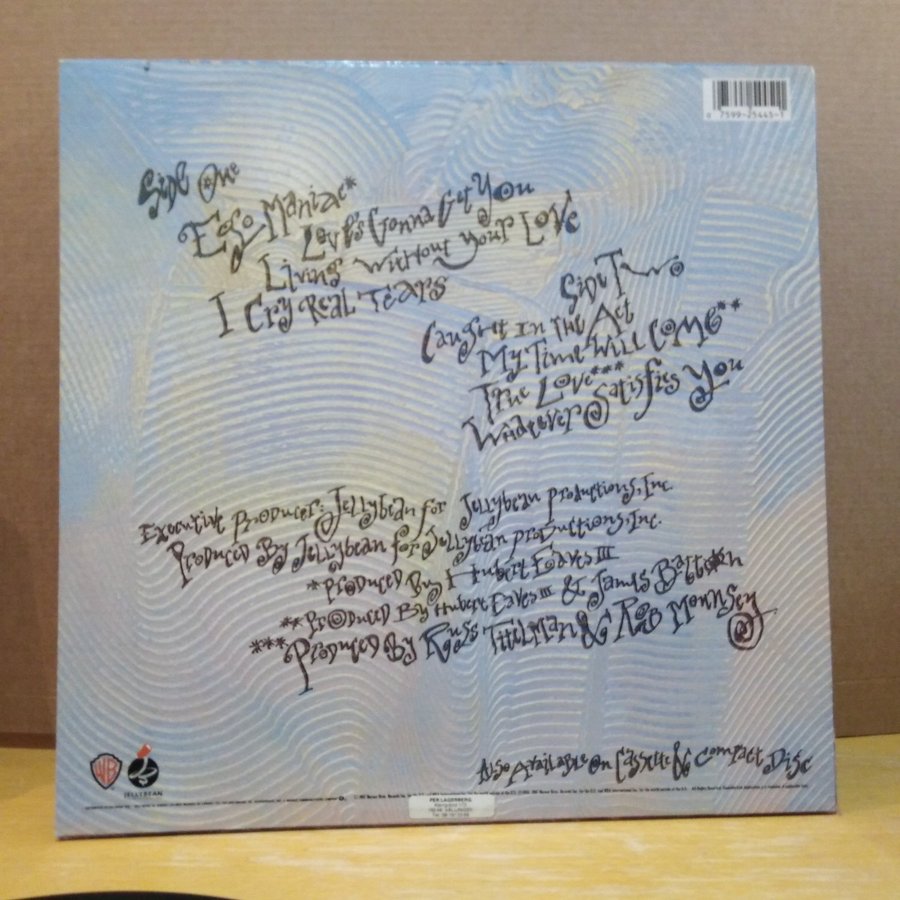 0 7599-25445-1
Side One
Ego Maniac*
Love's Gonna Get You
Living Without Your Love
I Cry Real Tears
Side Two
Caught In The Act
My Time Will Come**
True Love***
Whatever Satisfies You
Executive Producer: Jellybean for Jellybean Productions, Inc.
Produced By Jellybean for Jellybean Productions, Inc.
*Produced By Hubert Eaves III
**Produced By Hubert Eaves III & James Batton
***Produced By Russ Titelman & Rob Mounsey
Also Available On Cassette & Compact Disc
WB
JELLYBEAN
PER LAGERBERG